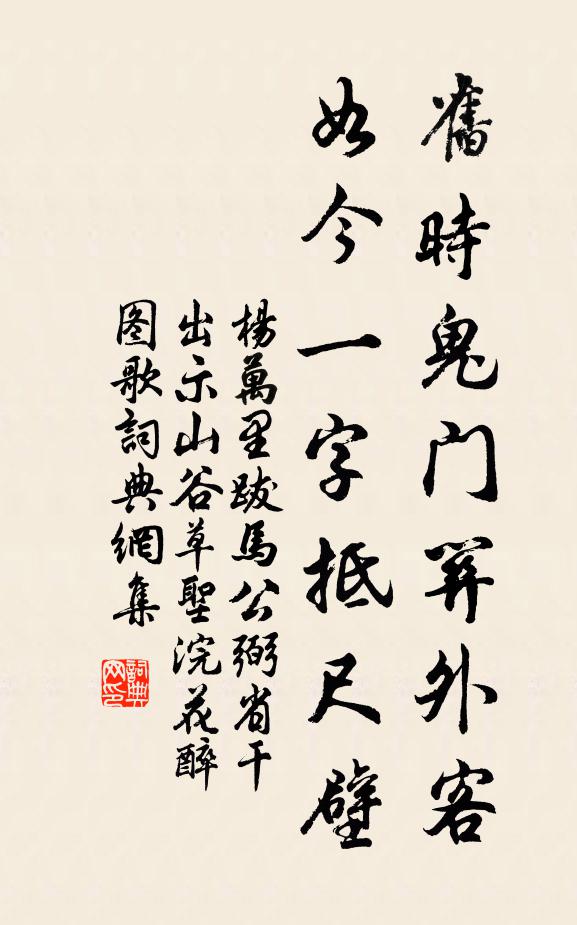 舊時鬼门関外客
如今一字抵尺璧
楊萬里跋馬公弼省干
出示山谷草聖浣花醉
图歌詞典網集
詞典网印